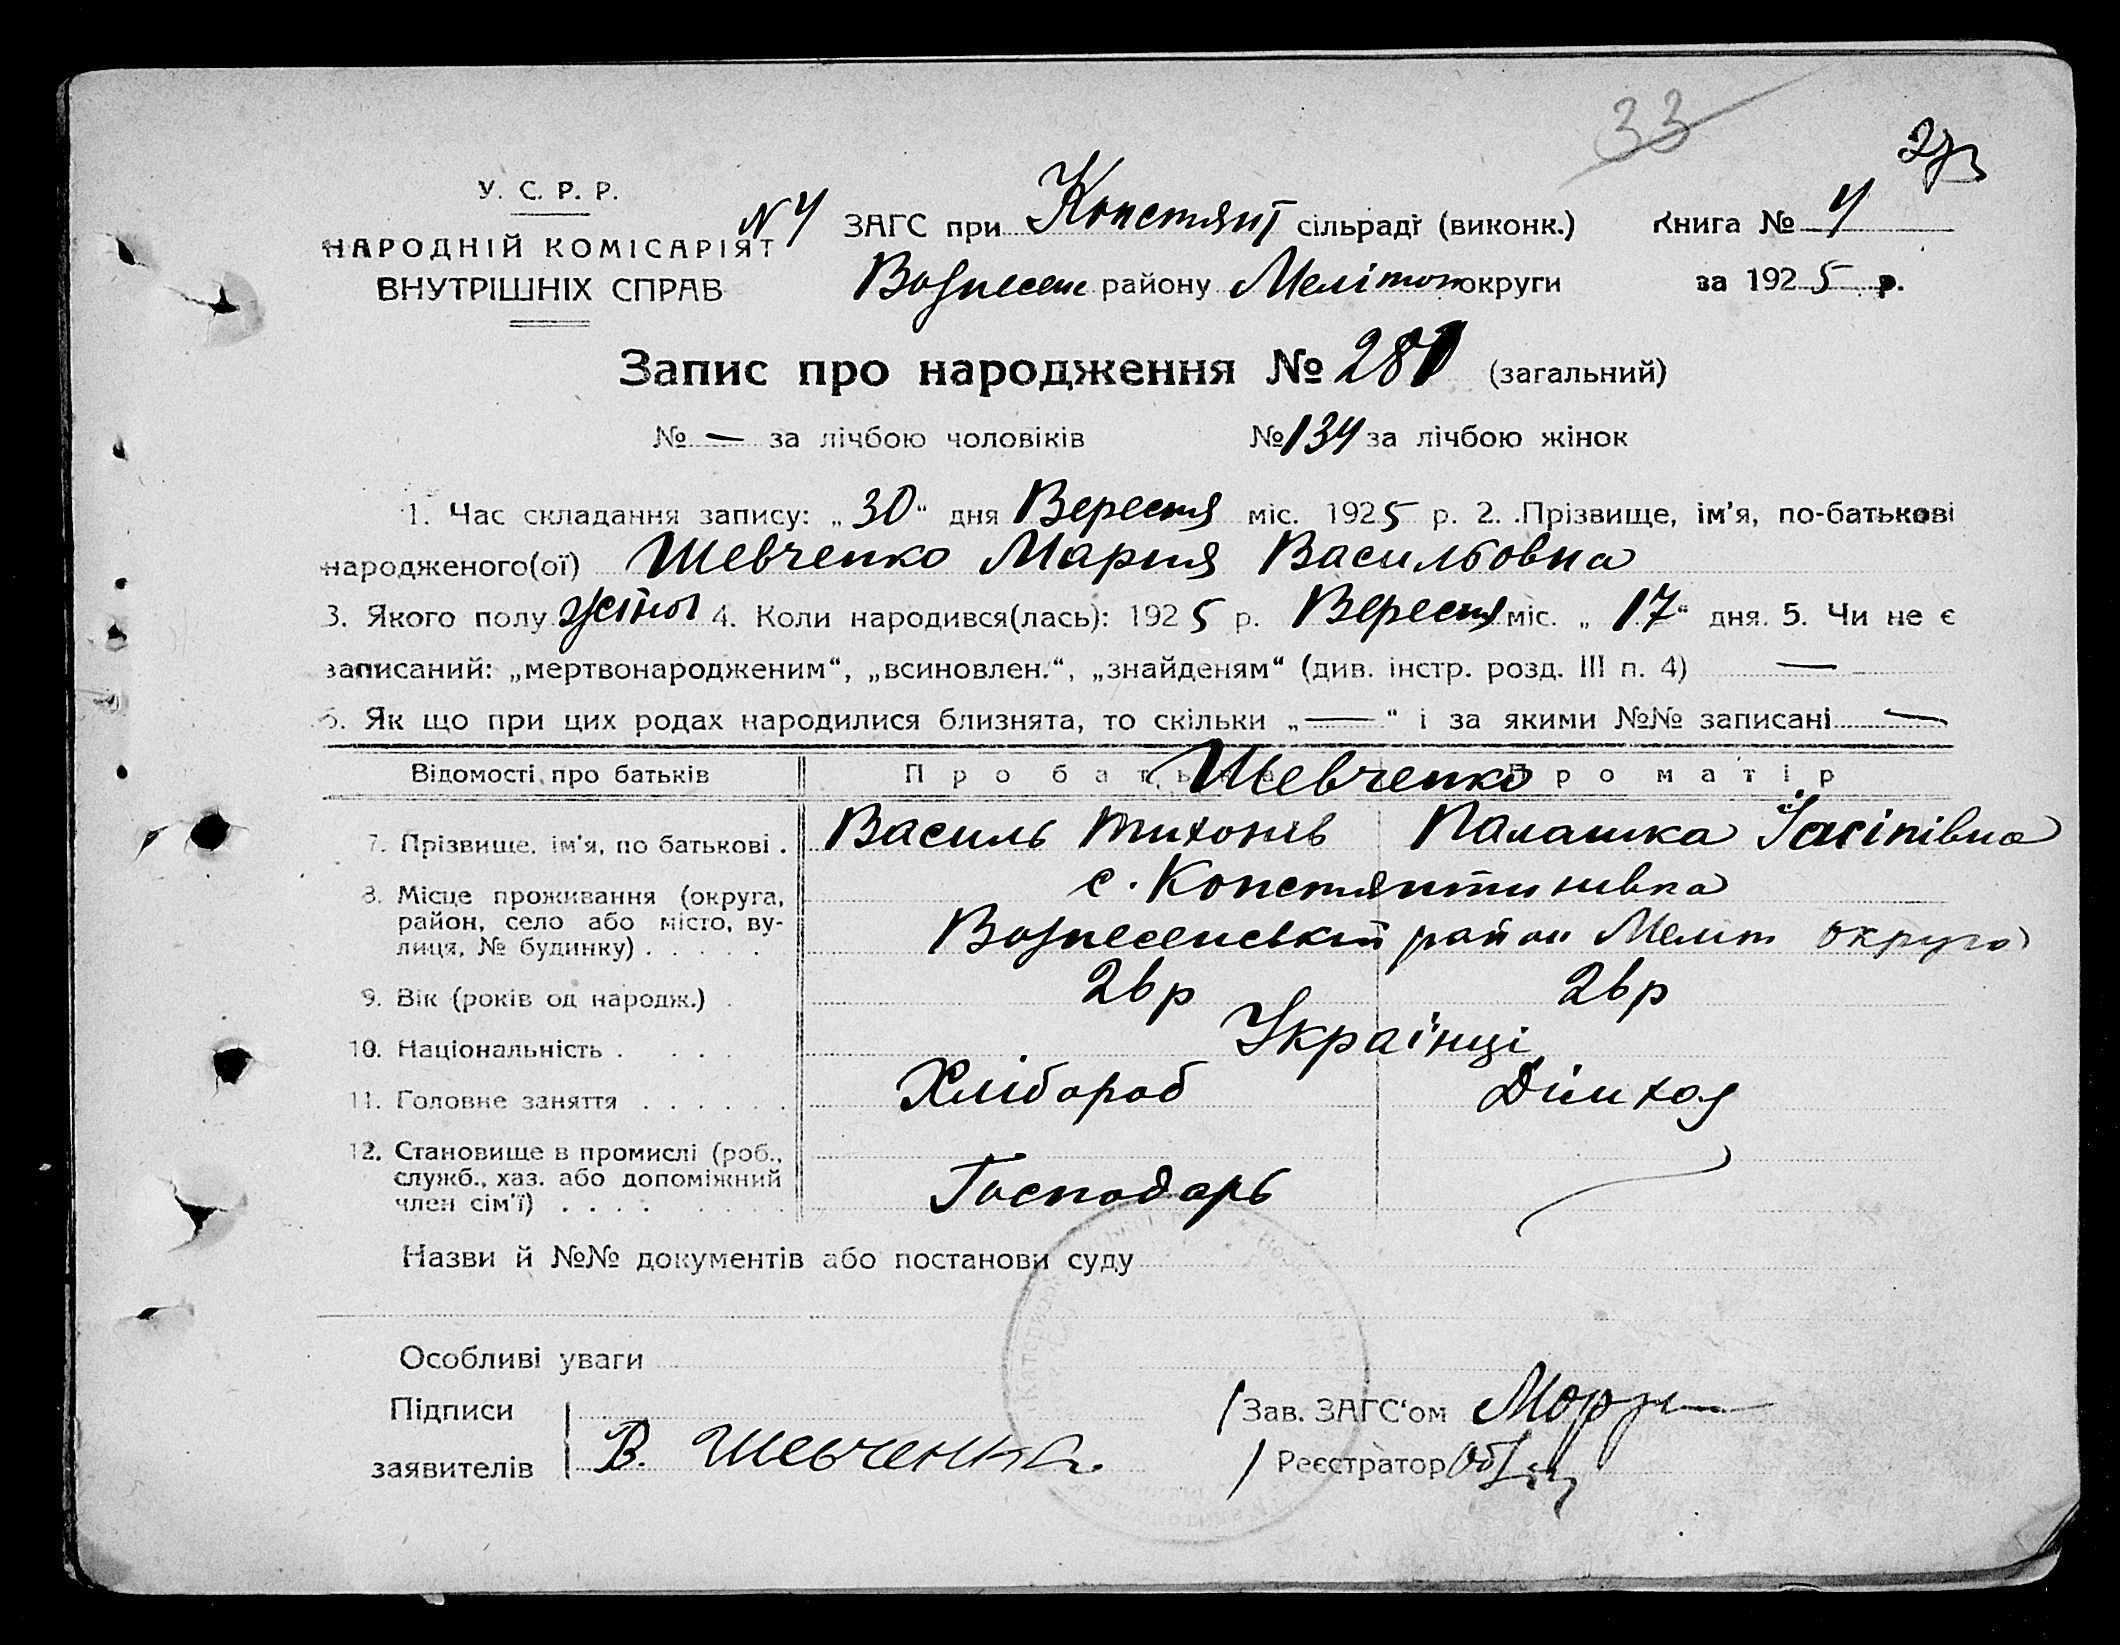 33
У. С. Р. Р.
НАРОДНІЙ КОМІСАРІЯТ
ВНУТРІШНІХ СПРАВ
N 4 ЗАГС при Констянт сільраді (виконк.) Книга № 4
Вознесен району Мелітоп округи за 1925 р.
Запис про народження № 281 (загальний)
№ — за лічбою чоловіків № 134 за лічбою жінок
1. Час складання запису: „30“ дня Вересня міс. 1925 р. 2. Прізвище, ім'я, по-батькові
народженого(ої) Шевченко Мария Васильовна
3. Якого полу жіноч 4. Коли народився(лась): 1925 р. Вересня міс. „17“ дня. 5. Чи не є
записаний: „мертвонародженим“, „всиновлен.“, „знайденям“ (див. інстр. розд. III п. 4) —
6. Як що при цих родах народилися близнята, то скільки „—“ і за якими №№ записані —
Відомості про батьків Про батька Про матір
Шевченко
7. Прізвище, ім'я, по батькові . Василь Тихонів Палашка Іасіпівна
8. Місце проживання (округа, район, село або місто, вулиця, № будинку) . . . . . с. Констянтинивка
Вознесенський район Меліт округа
9. Вік (років од народж.) . 26 р 26 р
10. Національність . . . . Українці
11. Головне заняття . . . . . . Хлібороб Дімхоз
12. Становище в промислі (роб., служб., хаз. або допоміжний член сім'ї) . . . . Господарь
Назви й №№ документів або постанови суду
Особливі уваги
Підписи
заявителів В. Шевченко
Зав. ЗАГС'ом
Реєстратор